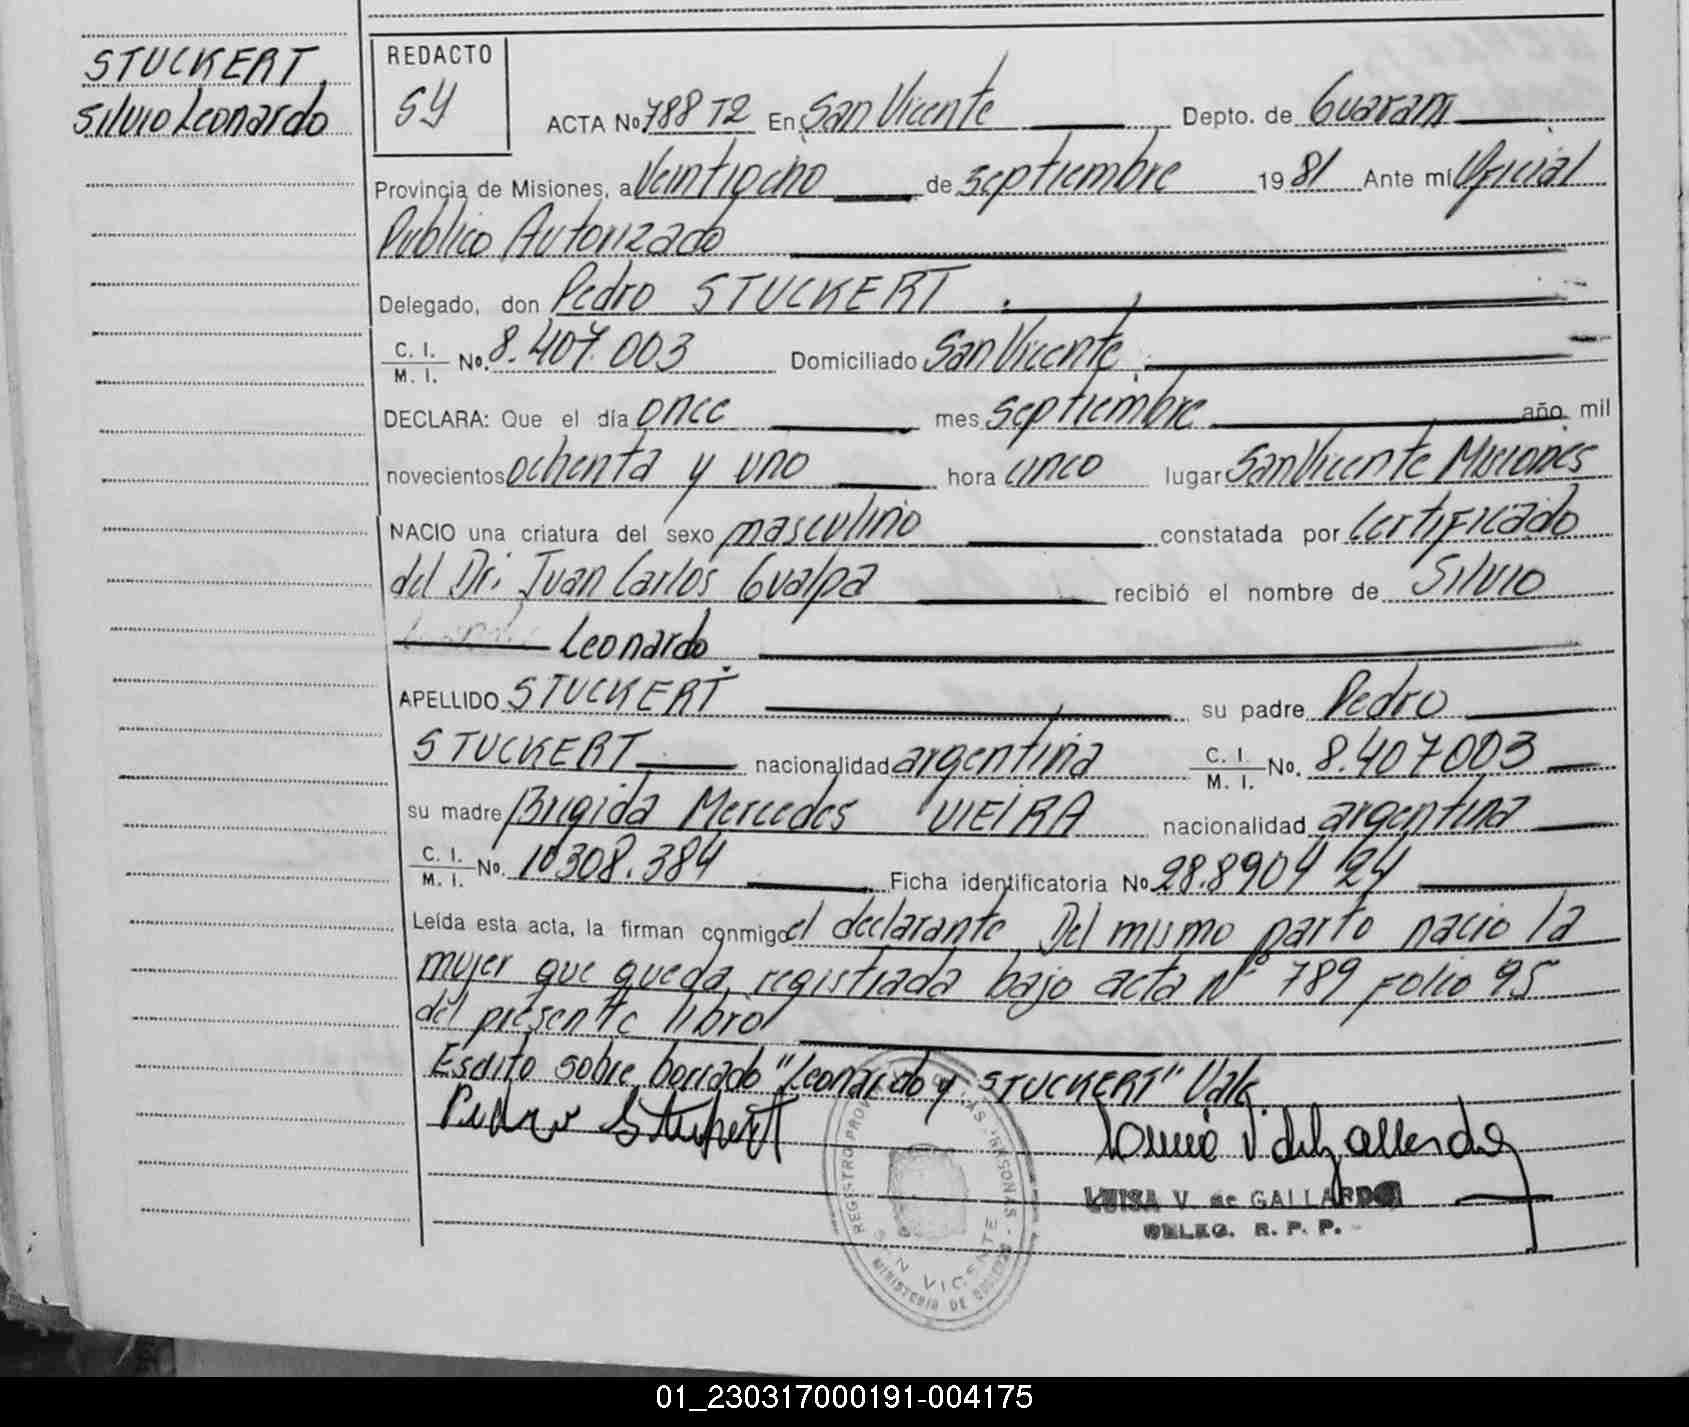 STUCKERT,
Silvio Leonardo
REDACTO
SY
ACTA No 788 T2 En San Vicente Depto. de Guarani
Provincia de Misiones, a Veintiocho de septiembre 1981 Ante mí Oficial
Publico Autorizado
Delegado, don Pedro STUCKERT
C. I. M. I. No. 8.407.003 Domiciliado San Vicente
DECLARA: Que el día once mes septiembre año mil
novecientos ochenta y uno hora cinco lugar San Vicente Misiones
NACIO una criatura del sexo masculino constatada por Certificado
del Dr. Juan Carlos Gualpa recibió el nombre de Silvio
Leonardo
APELLIDO STUCKERT su padre Pedro
STUCKERT nacionalidad argentina C. I. M. I. No. 8.407003
su madre Brigida Mercedes VIEIRA nacionalidad argentina
C. I. M. I. No. 10308.384 Ficha identificatoria No
Leída esta acta, la firman conmigo el declarante Del mismo parto nacio la
mujer que queda registrada bajo acta N° 789 folio 95
del presente libro
Escrito sobre borrado "Leonardo y STUCKERT" Vale.
Pedro Stukert
REGISTRO PROV. DE LAS PERSONAS
SAN VICENTE
MINISTERIO DE GOBIERNO
LUISA V. de GALLARDO
DELEG. R. P. P.
01_230317000191-004175